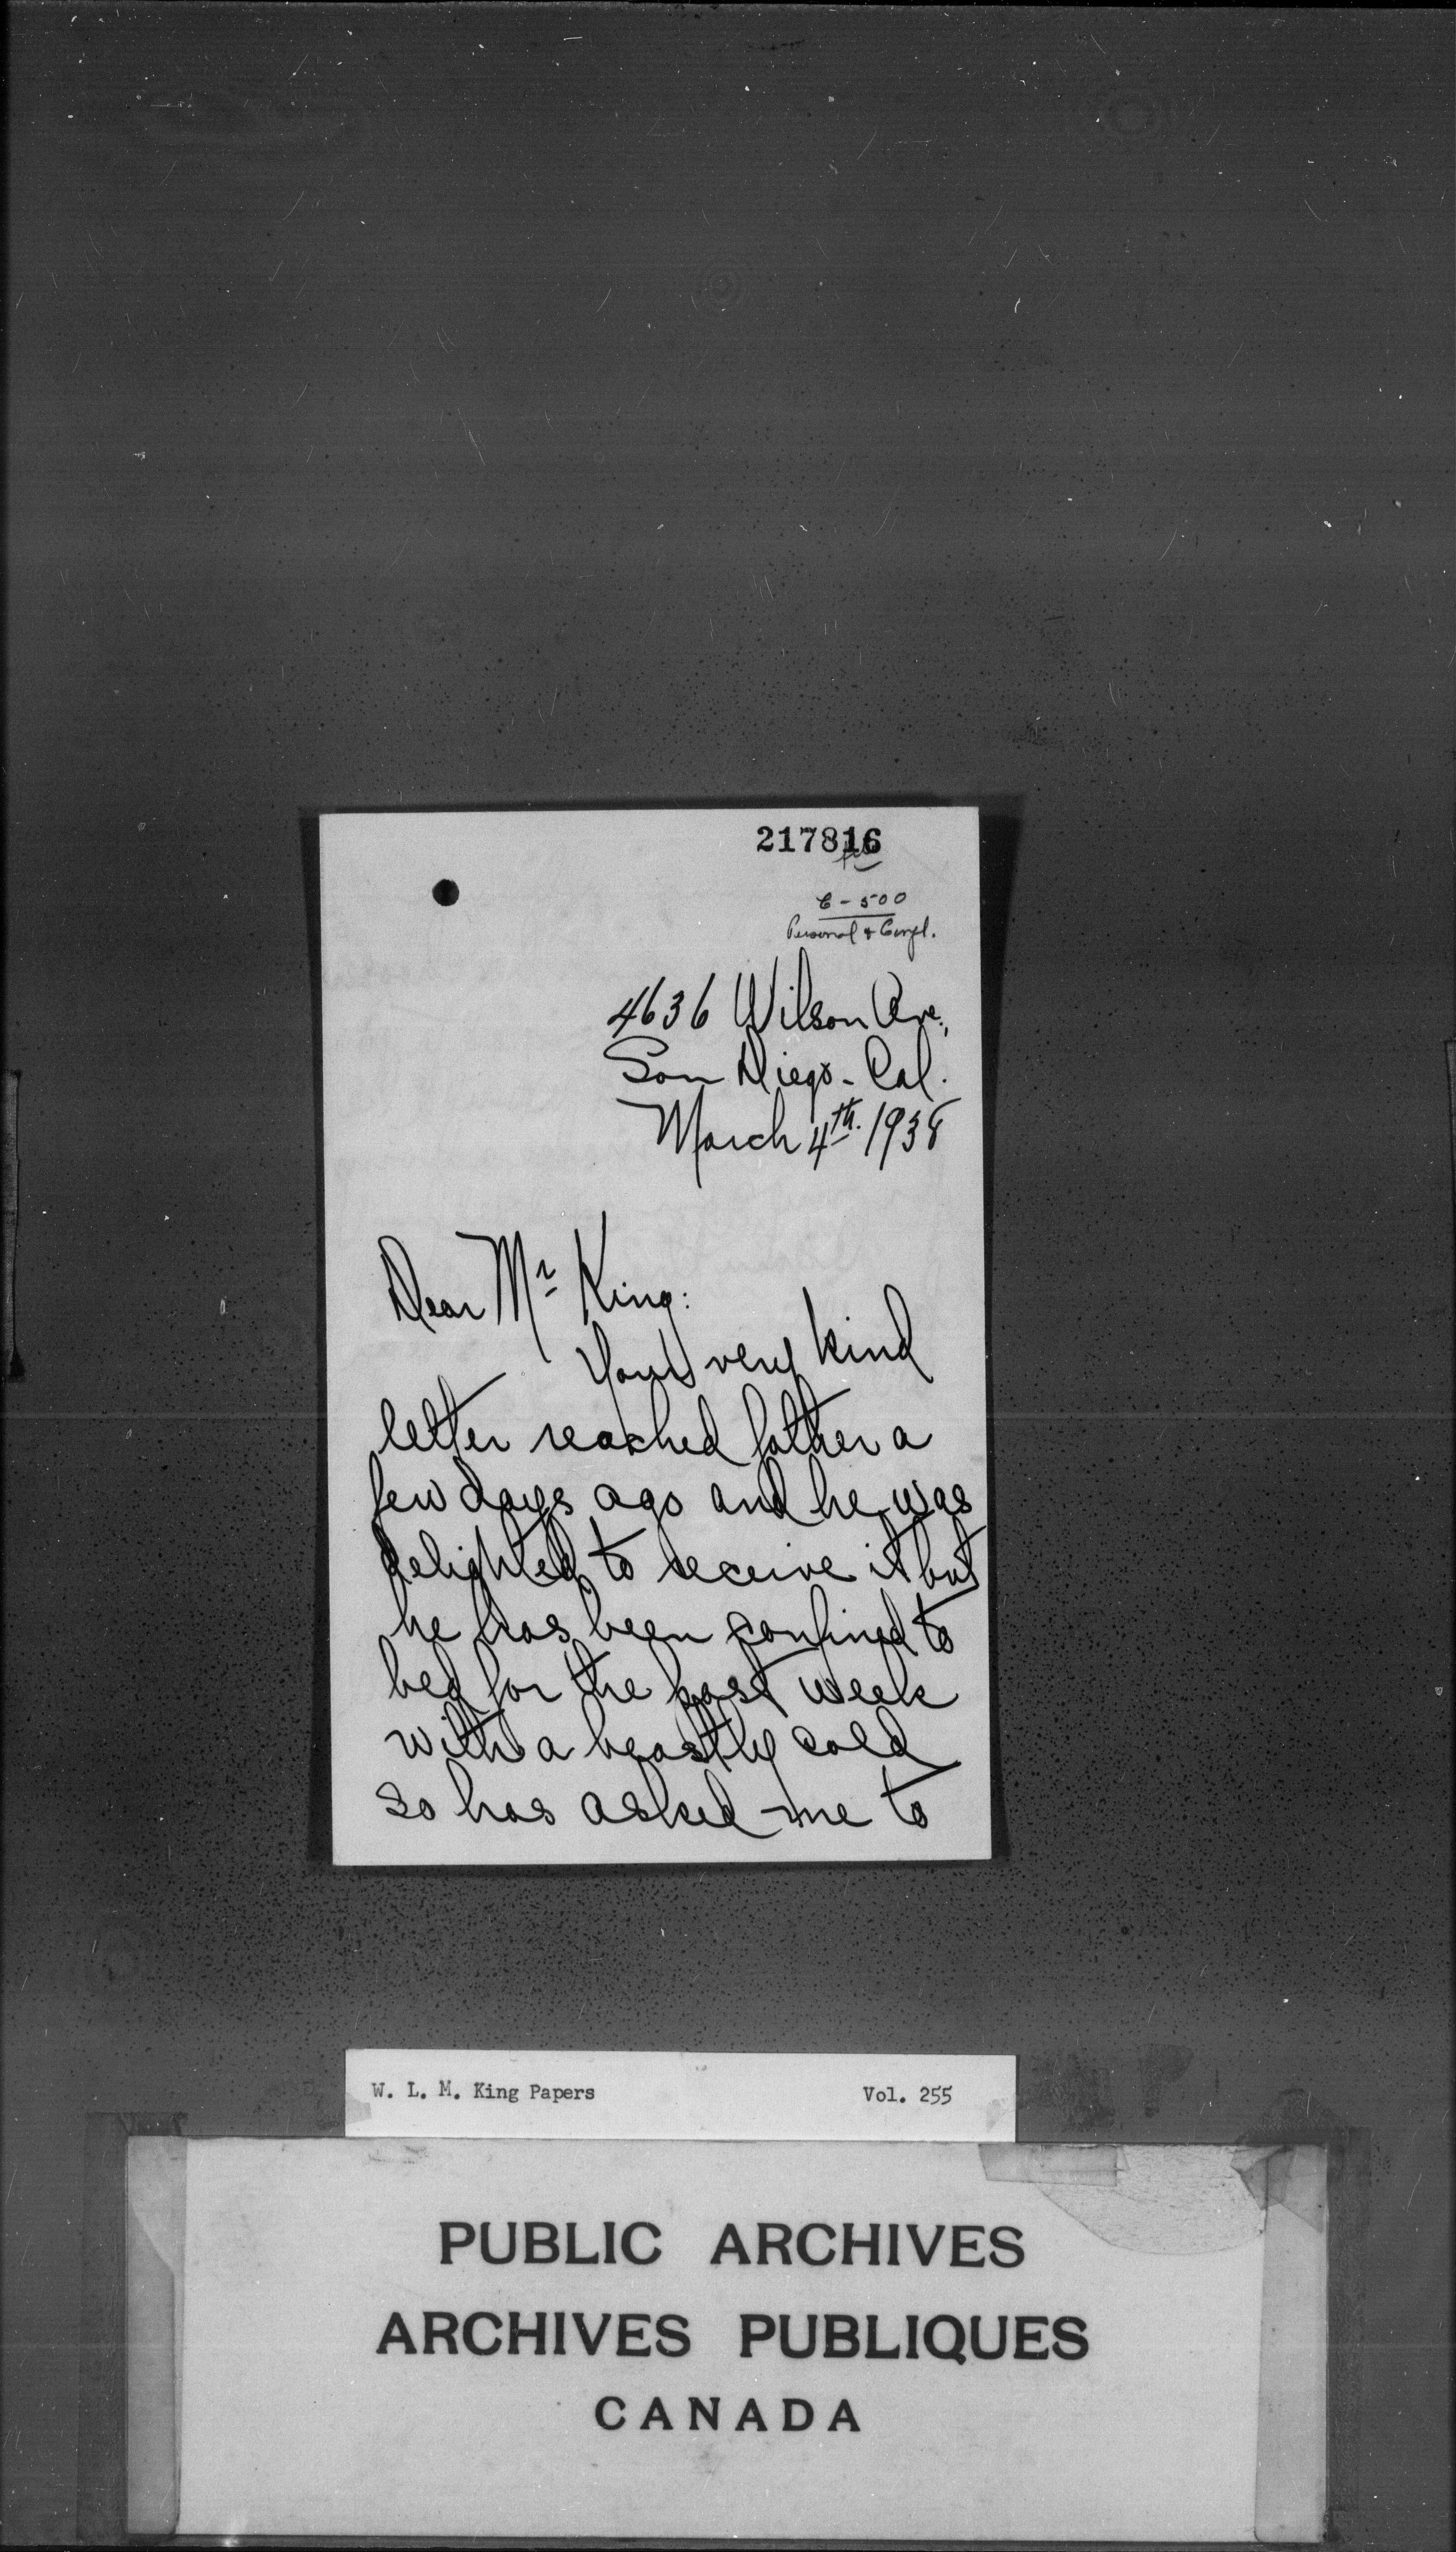 217816
C-500
Personal & Conf'l.
4636 Wilson Ave.,
San Diego - Cal.
March 4th. 1938
Dear Mr King:
Your very kind
letter reached father a
few days ago and he was
delighted to receive it but
he has been confined to
bed for the past week
with a beastly cold
so has asked me to
W. L. M. King Papers Vol. 255
PUBLIC ARCHIVES
ARCHIVES PUBLIQUES
CANADA